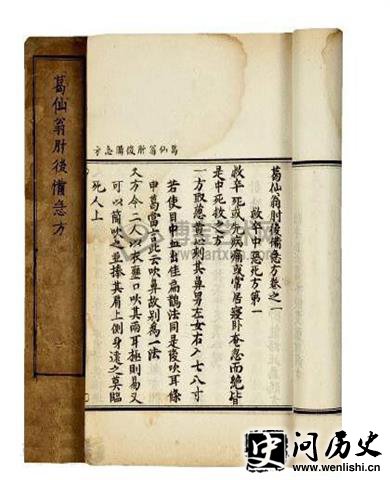 葛仙翁肘後備急方
葛仙翁肘後備急方
葛仙翁肘後備急方卷之一
救卒中惡死方第一
救卒死或先病痛或常居寢卧奄忽而絶皆
是中死救之方
一方取葱黄心刺其鼻男左女右入七八寸
若使目中血出佳扁鵲法同是後吹耳條
中葛當言此云吹鼻故别為一法
又方令二人以衣壅口吹其兩耳極則易又
可以筒吹之並捧其肩上側身遠之莫臨
死人上
问历史
www.wenlishi.cn